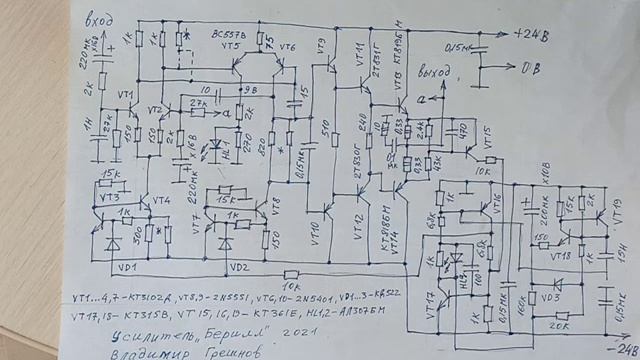 вход
220мк
х16В
2к
1Н
27к
1к
1к
*
VT1
VT2
150
150
BC557В
VT5
75
VT6
10
9В
27к
а
2к
2к
220мк
х16В
HL1
270
820
*
15
0,15мк
VT9
510
VT10
VT11
2Т831Г
240
2Т830Г
VT12
VT13
КТ819БМ
10
0,33
0,33
2.4к
43к
КТ818БМ
VT14
выход
а
470
VT15
10к
0,15мк
+24В
0В
15к
VT3
VT4
1к
560
*
VD1
15к
VT7
1к
VT8
150
VD2
10к
1к
6.8к
VT16
1к
HL2
100
6.8к
VT17
1к
0,15мк
160к
220мк
х10В
15к
2к
VT19
150
VT18
1к
15Н
VD3
20к
0,15мк
-24В
VT1...4,7-КТ3102Д, VT8,9-2N5551, VT6,10-2N5401, VD1...3-КД522
VT17,18-КТ315В, VT15,16,19-КТ361Е, HL1,2-АЛ307БМ
Усилитель "Берилл" 2021
Владимир Грешнов